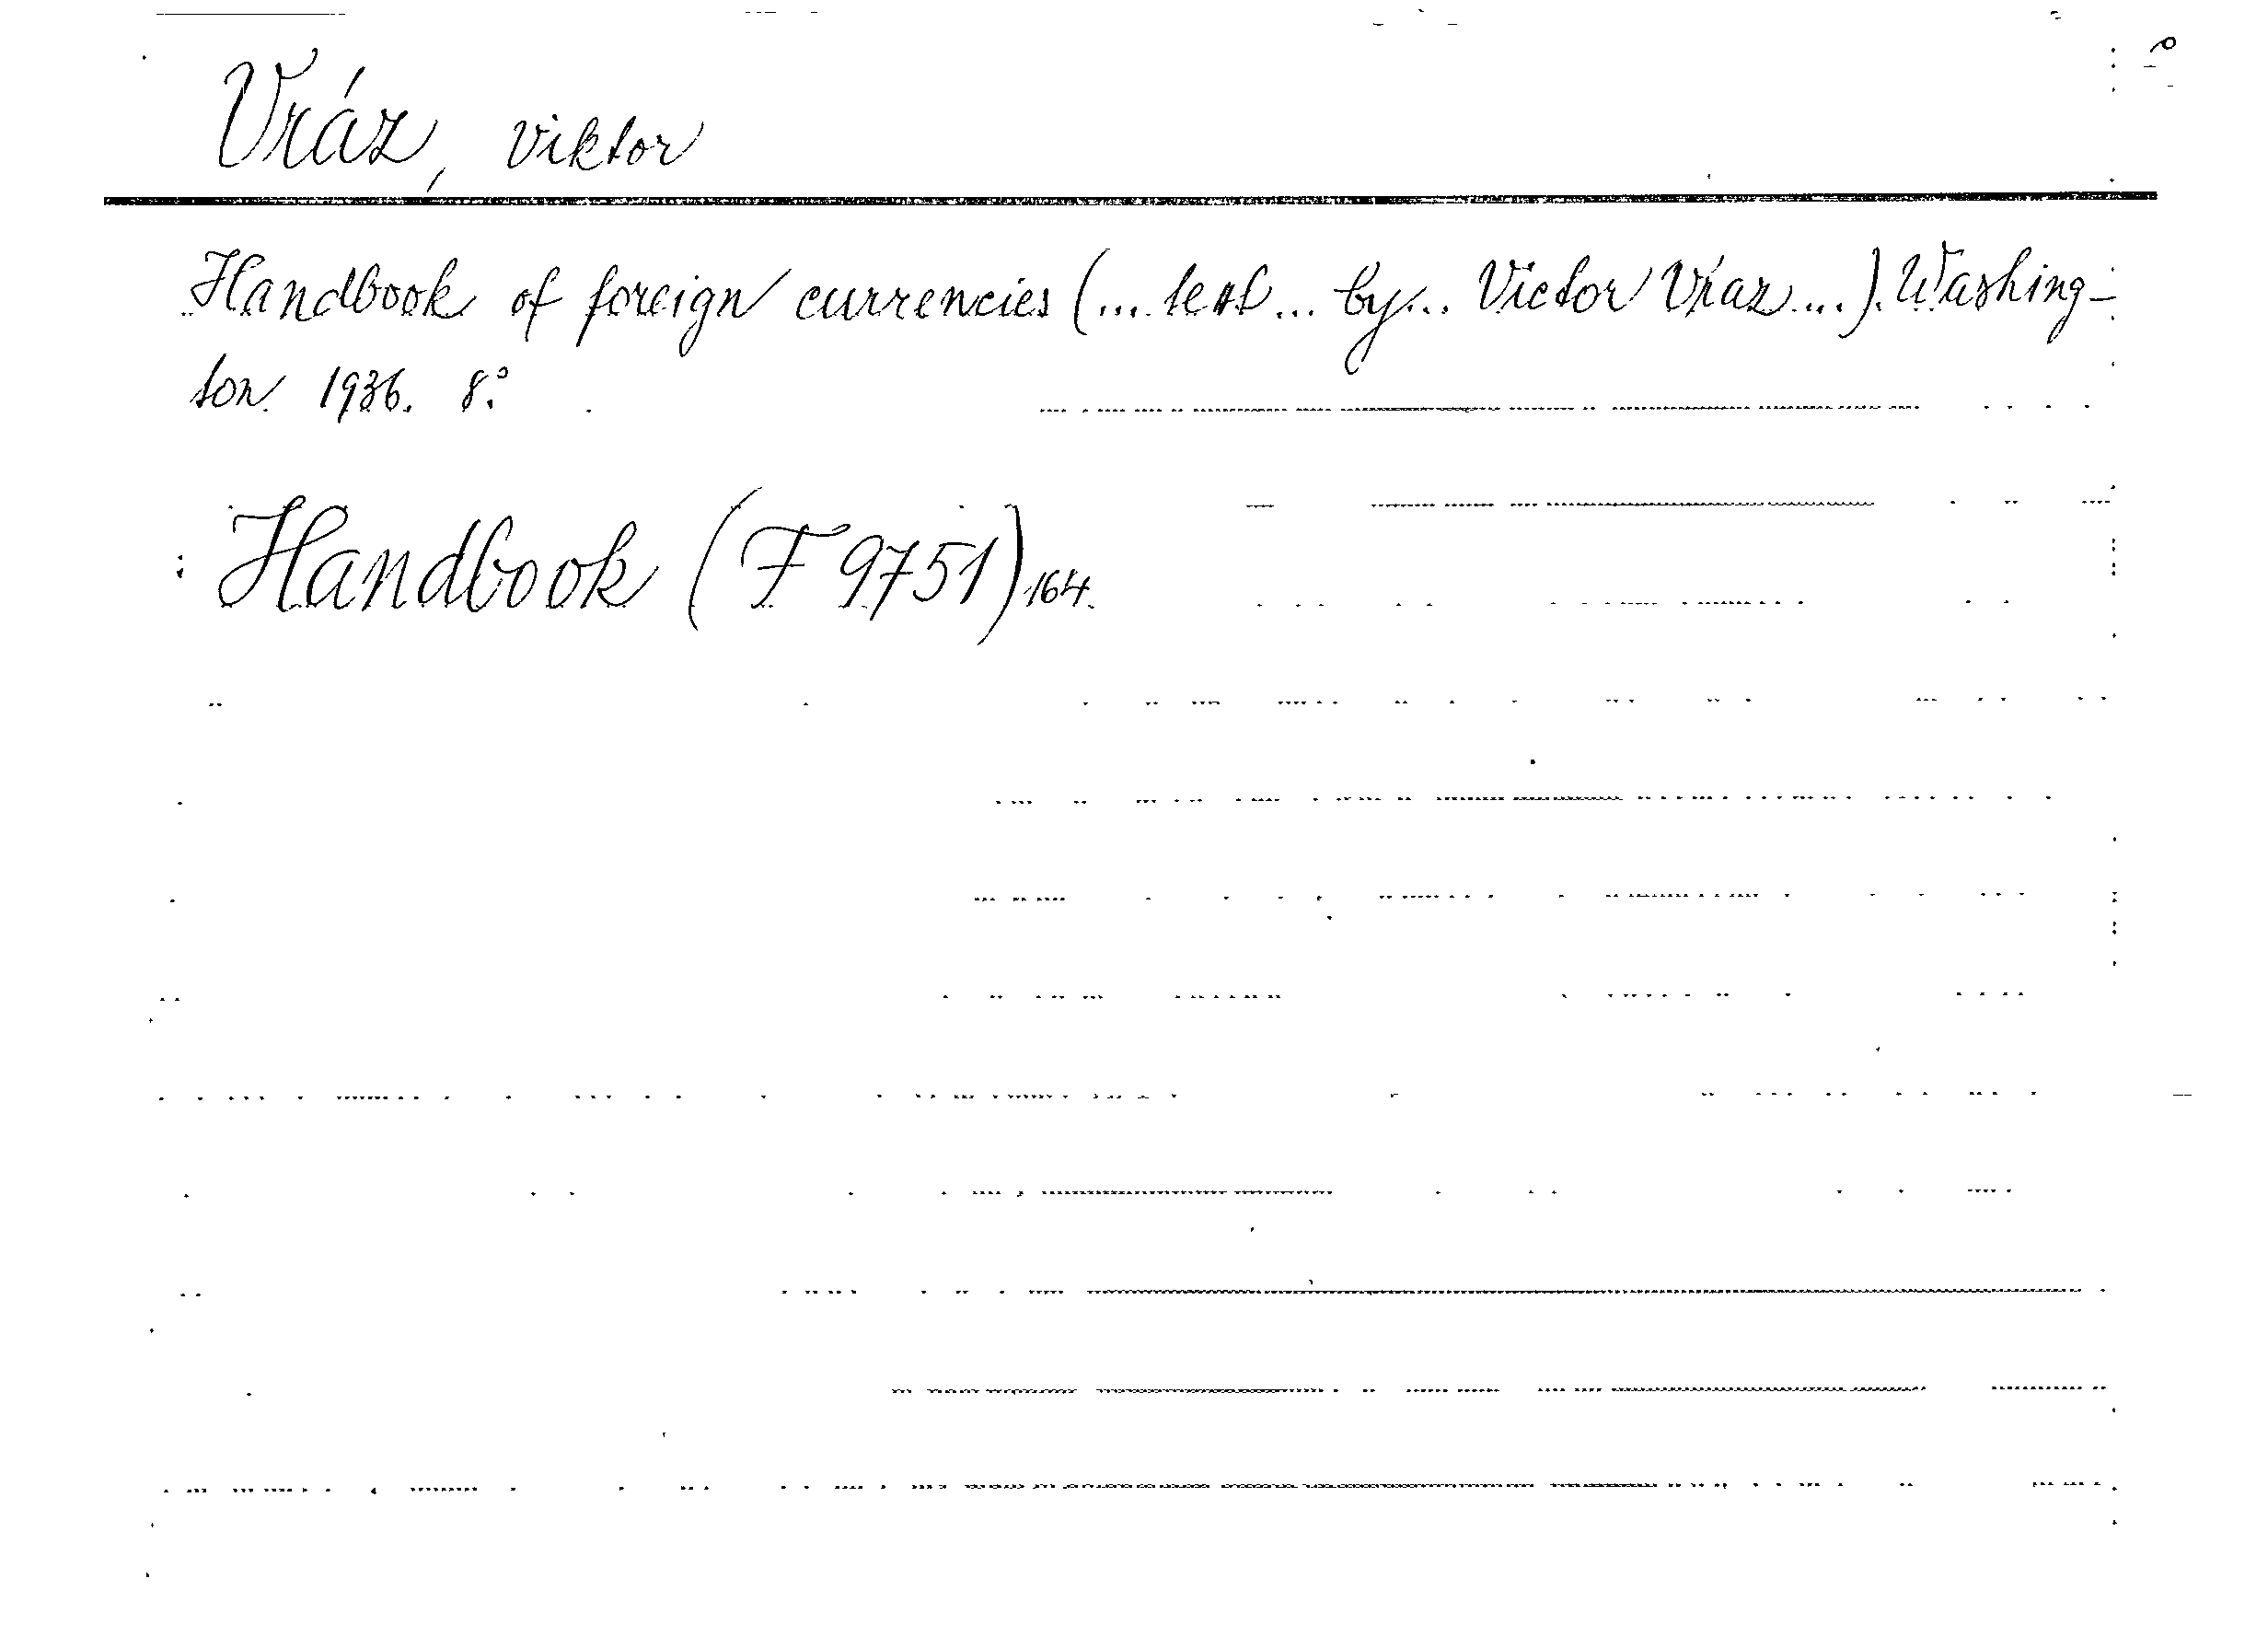 Vráz, Viktor
Handbook of foreign currencies (... text ... by ... Victor Vráz ...). Washing-
ton 1936. 8°.
Handbook (F 9751) 164.